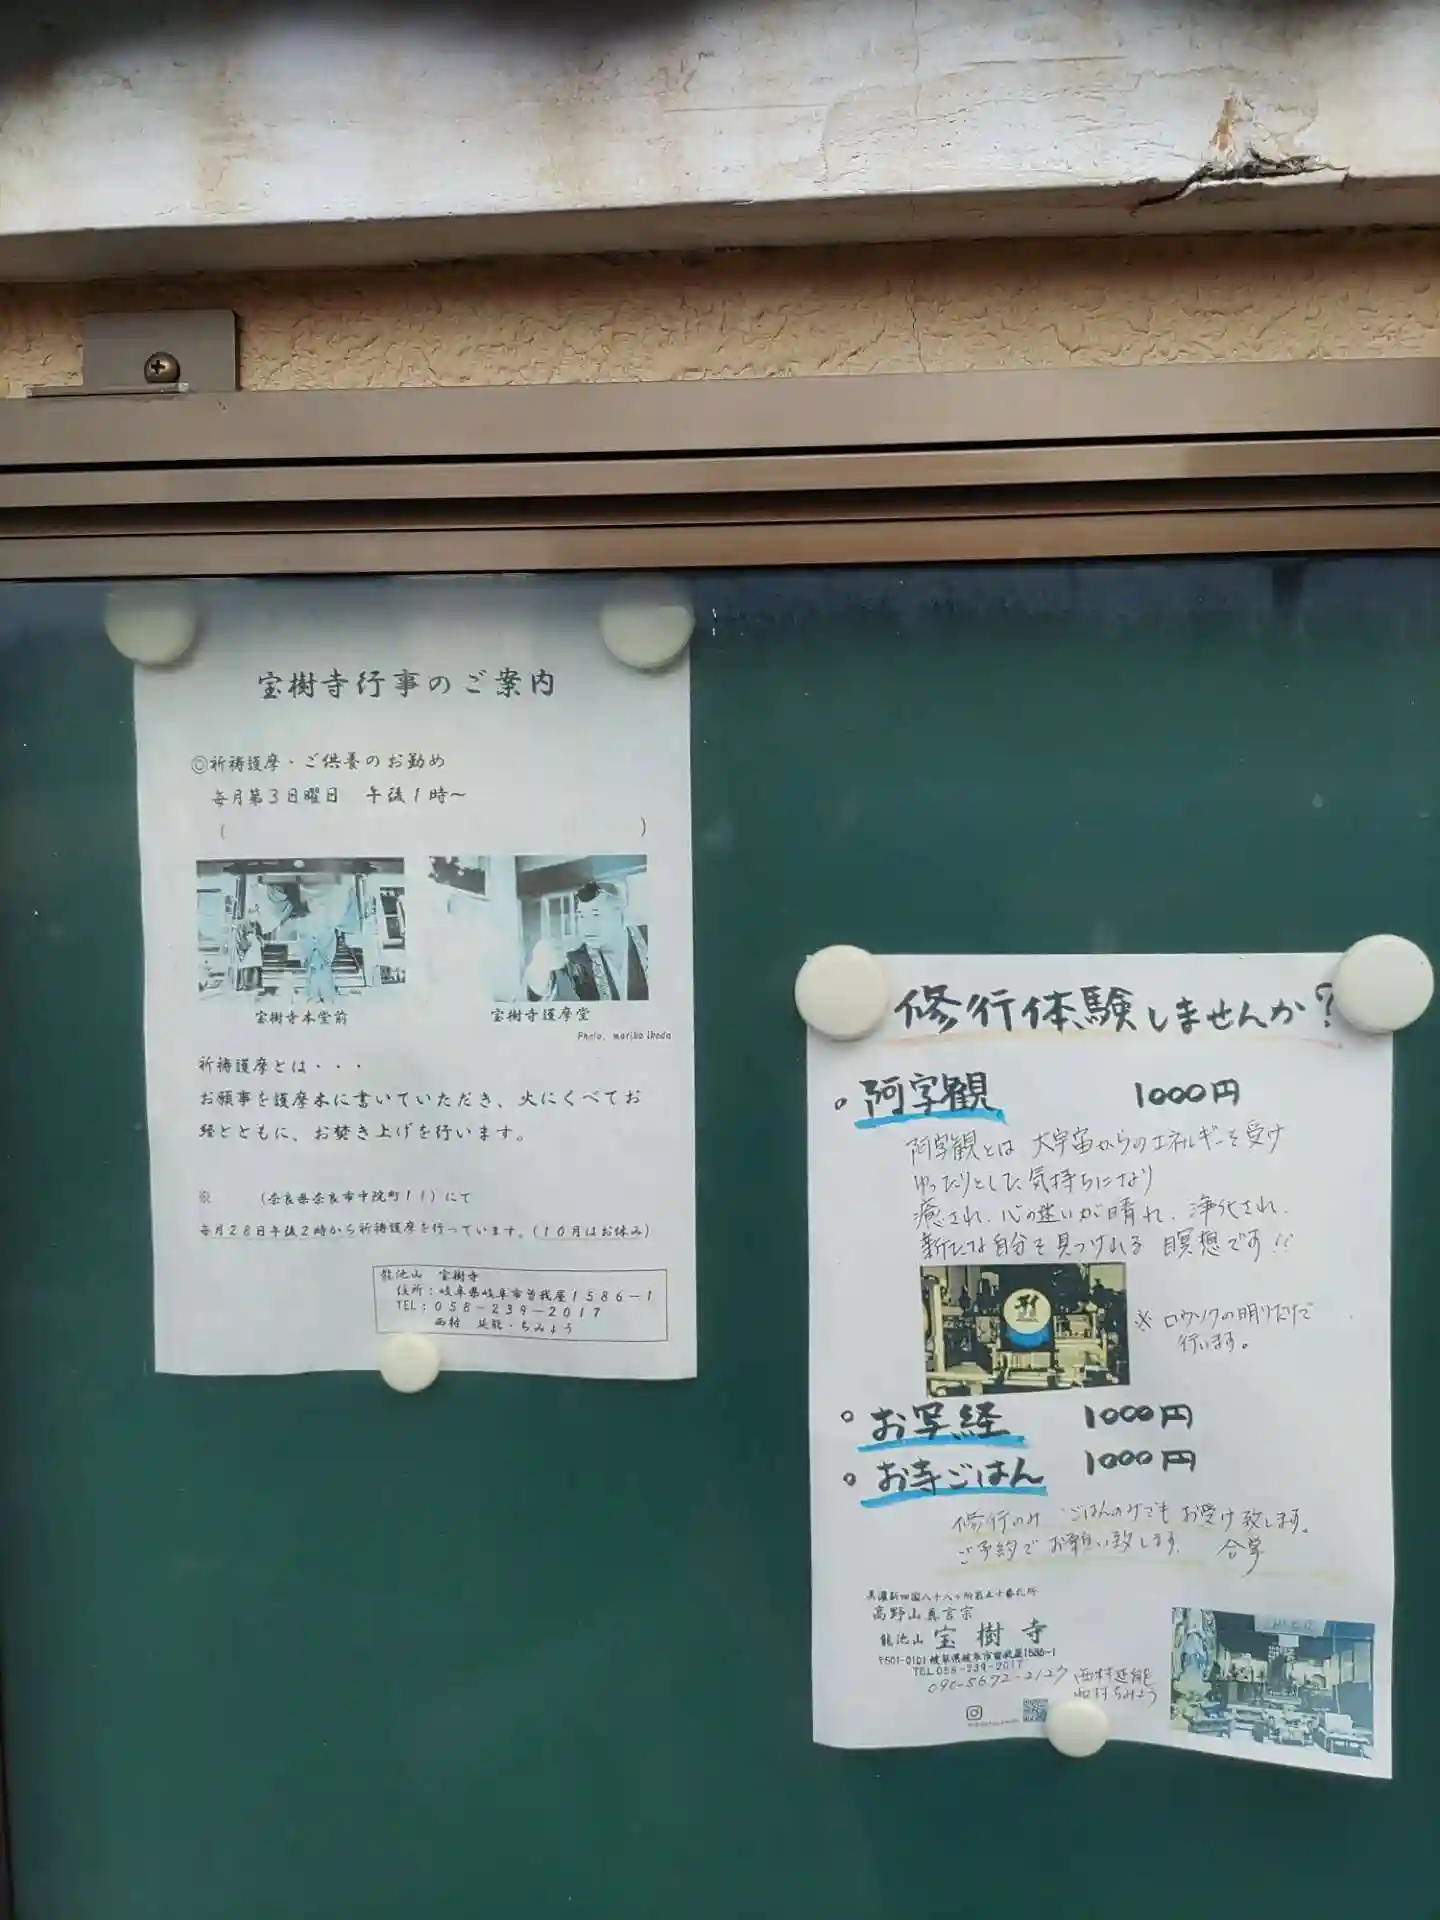 宝樹寺行事のご案内
◎祈祷護摩・ご供養のお勤め
毎月第3日曜日 午後1時〜
( )
宝樹寺本堂前
宝樹寺護摩堂
Photo. mariko ikeda
祈祷護摩とは・・・
お願事を護摩木に書いていただき、火にくべてお
経とともに、お焚き上げを行います。
※ (奈良県奈良市中院町11)にて
毎月28日午後2時から祈祷護摩を行っています。(10月はお休み)
龍池山 宝樹寺
住所:岐阜県岐阜市曽我屋1586-1
TEL:058-239-2017
西村 延能・ちみょう
修行体験しませんか?
。阿字観 1000円
阿字観とは 大宇宙からのエネルギーを受け
ゆったりとした気持ちになり
癒され、心の迷いが晴れ、浄化され、
新たな自分を見つけれる 瞑想です!!
※ロウソクの明りだけで
行います。
。お写経 1000円
。お寺ごはん 1000円
修行のみ ごはんのみでも お受け致します。
ご予約で お願い致します。 合掌
美濃新四国八十八ヶ所第五十番札所
高野山真言宗
龍池山 宝樹寺
〒501-0101 岐阜県岐阜市曽我屋1586-1
TEL 058-239-2017
090-5672-2127 西村延能
西村ちみょう